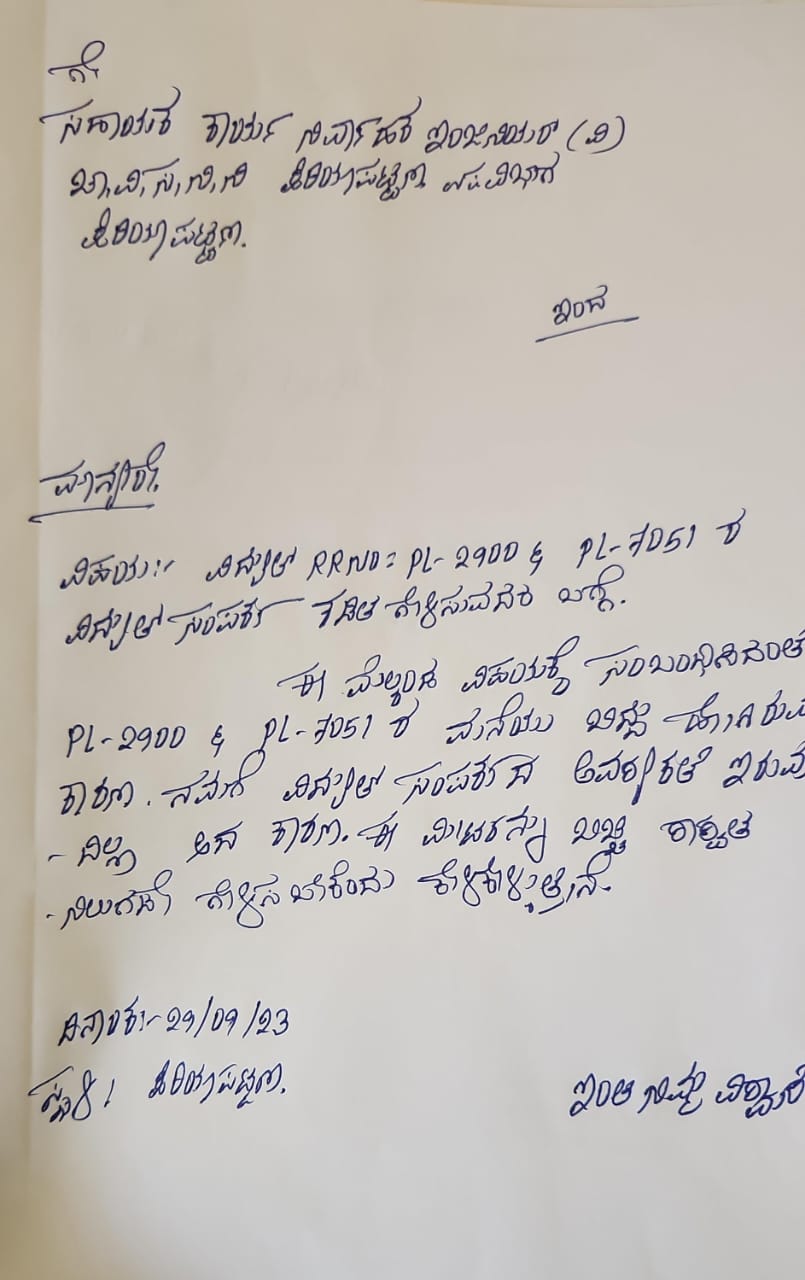 ಗೆ.
ಸಹಾಯಕ ಕಾರ್ಯ ನಿರ್ವಾಹಕ ಇಂಜಿನಿಯರ್ (ವಿ)
ಚಾ,ವಿ,ಸ,ನಿ,ನಿ ಪಿರಿಯಾಪಟ್ಟಣ ಉಪವಿಭಾಗ
ಪಿರಿಯಾಪಟ್ಟಣ.
ಇಂದ
ಮಾನ್ಯರೇ.
ವಿಷಯ:- ವಿದ್ಯುತ್ RRNO: PL-2900 & PL-7051 ರ
ವಿದ್ಯುತ್ ಸಂಪರ್ಕ ಕಡಿತ ಗೊಳಿಸುವದರ ಬಗ್ಗೆ.
ಈ ಮೆಲ್ಕಂಡ ವಿಷಯಕ್ಕೆ ಸಂಬಂಧಿಸಿದಂತೆ
PL-2900 & PL-7051 ರ ಮನೆಯು ಬಿದ್ದು ಹೋಗಿರುವ
ಕಾರಣ. ನಮಗೆ ವಿದ್ಯುತ್ ಸಂಪರ್ಕದ ಅವಶ್ಯಕತೆ ಇರುವ
- ದಿಲ್ಲ ಆದ ಕಾರಣ. ಈ ಮೀಟರನ್ನು ಬಿಚ್ಚಿ ಶಾಶ್ವತ
- ನಿಲುಗಡೆ ಗೊಳಿಸ ಬೇಕೆಂದು ಕೇಳಿಕೊಳ್ಳುತ್ತೇನೆ.
ದಿನಾಂಕ:- 29/09/23
ಸ್ಥಳ: ಪಿರಿಯಾಪಟ್ಟಣ.
ಇಂತಿ ನಿಮ್ಮ ವಿಶ್ವಾಸಿ